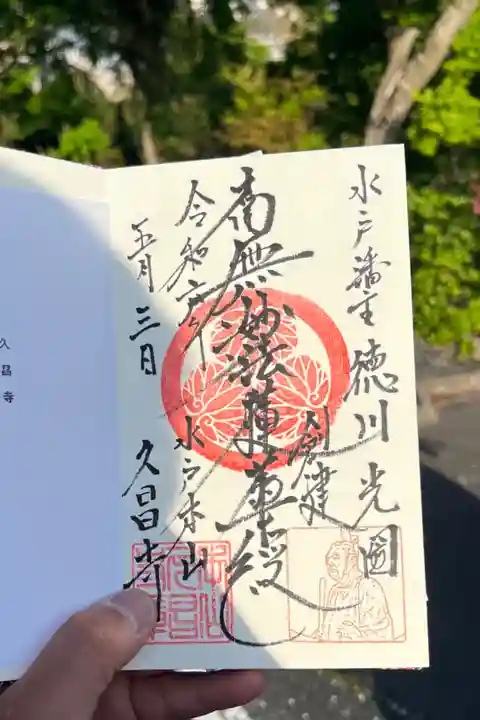 水戸藩主 徳川光圀
創建
南無妙法蓮華経
水戸本山
久昌寺
令和六年
五月三日
久昌寺